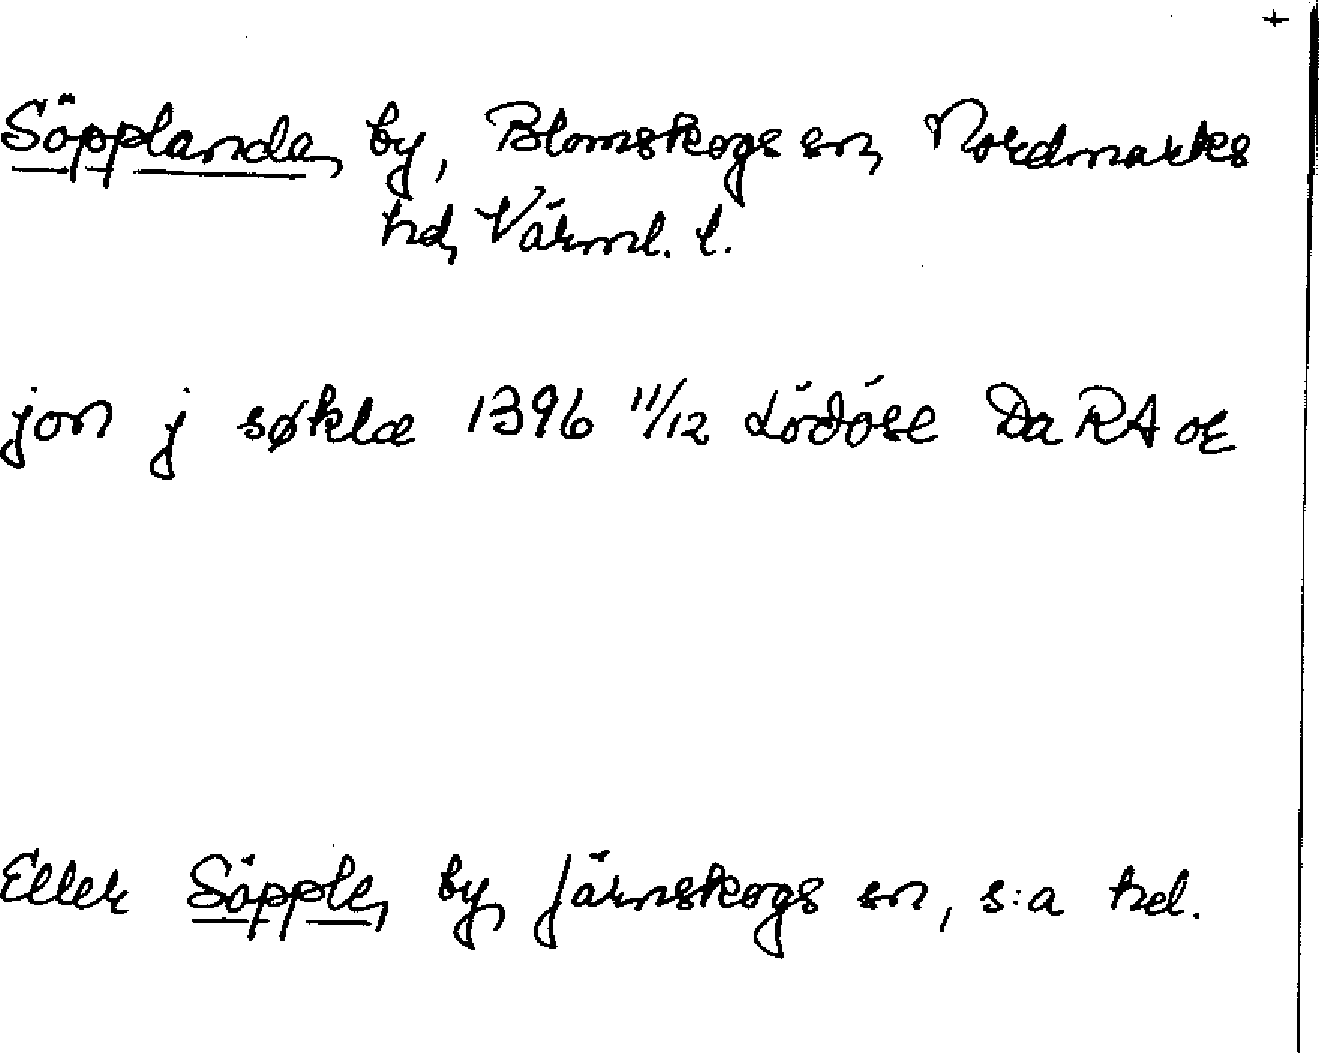 +
Söpplanda, by, Blomskogs sn, Nordmarks
hd, Värml. l.
jon j søklæ 1396 11/12 Lödöse DaRA or
Eller Söpple, by, Järnskogs sn, s:a hd.